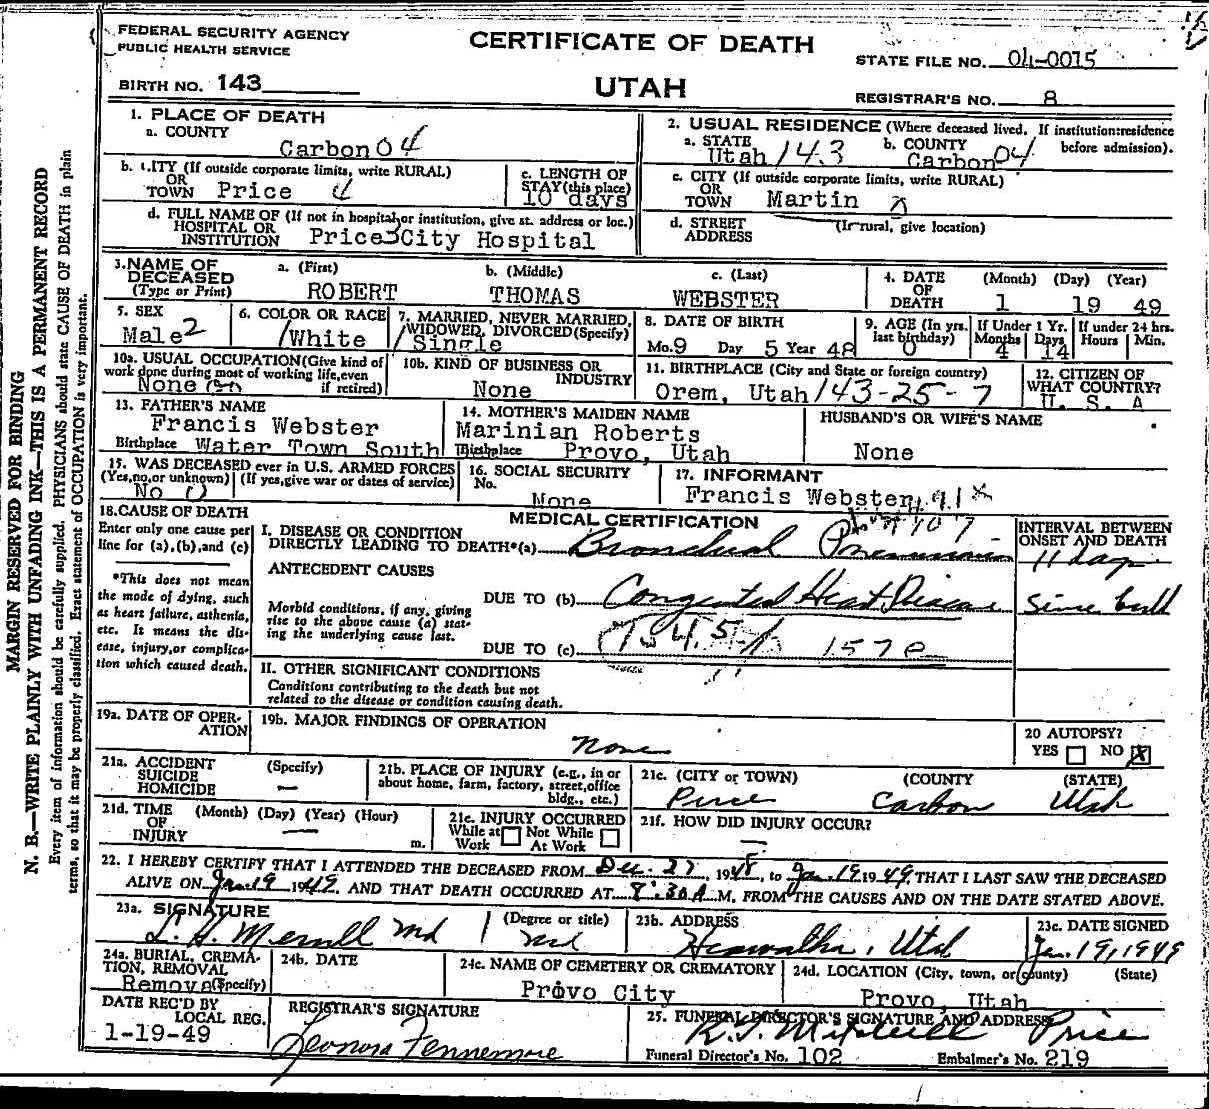 FEDERAL SECURITY AGENCY
PUBLIC HEALTH SERVICE
CERTIFICATE OF DEATH
STATE FILE NO. 04-0015
BIRTH NO. 143
UTAH
REGISTRAR'S NO. 8
1. PLACE OF DEATH
a. COUNTY
Carbon 04
2. USUAL RESIDENCE (Where deceased lived. If institution:residence before admission).
a. STATE Utah 143 b. COUNTY Carbon 04
b. CITY (If outside corporate limits, write RURAL)
OR TOWN Price
c. LENGTH OF STAY (this place)
10 days
c. CITY (If outside corporate limits, write RURAL)
OR TOWN Martin
d. FULL NAME OF (If not in hospital or institution, give st. address or loc.)
HOSPITAL OR INSTITUTION Price City Hospital
d. STREET ADDRESS (If rural, give location)
3. NAME OF DECEASED (Type or Print)
a. (First) b. (Middle) c. (Last)
ROBERT THOMAS WEBSTER
4. DATE OF DEATH (Month) (Day) (Year)
1 19 49
5. SEX
Male 2
6. COLOR OR RACE
White
7. MARRIED, NEVER MARRIED, WIDOWED, DIVORCED (Specify)
Single
8. DATE OF BIRTH
Mo. 9 Day 5 Year 48
9. AGE (In yrs. last birthday)
0
If Under 1 Yr. Months Days
4 14
If under 24 hrs. Hours Min.
10a. USUAL OCCUPATION (Give kind of work done during most of working life, even if retired)
None
10b. KIND OF BUSINESS OR INDUSTRY
None
11. BIRTHPLACE (City and State or foreign country)
Orem, Utah 143-25-7
12. CITIZEN OF WHAT COUNTRY?
U. S. A
13. FATHER'S NAME
Francis Webster
Birthplace Water Town South
14. MOTHER'S MAIDEN NAME
Marinian Roberts
Birthplace Provo, Utah
HUSBAND'S OR WIFE'S NAME
None
15. WAS DECEASED ever in U.S. ARMED FORCES
(Yes, no, or unknown) (If yes, give war or dates of service)
No
16. SOCIAL SECURITY No.
None
17. INFORMANT
Francis Webster
18. CAUSE OF DEATH
Enter only one cause per line for (a), (b), and (c)
*This does not mean the mode of dying, such as heart failure, asthenia, etc. It means the disease, injury, or complication which caused death.
MEDICAL CERTIFICATION
INTERVAL BETWEEN ONSET AND DEATH
I. DISEASE OR CONDITION
DIRECTLY LEADING TO DEATH*(a) Bronchial Pneumonia 11 days
ANTECEDENT CAUSES
Morbid conditions, if any, giving rise to the above cause (a) stating the underlying cause last.
DUE TO (b) Congenital Heart Disease since birth
DUE TO (c) 157e
II. OTHER SIGNIFICANT CONDITIONS
Conditions contributing to the death but not related to the disease or condition causing death.
19a. DATE OF OPERATION
19b. MAJOR FINDINGS OF OPERATION
None
20 AUTOPSY?
YES NO X
21a. ACCIDENT SUICIDE HOMICIDE (Specify)
21b. PLACE OF INJURY (e.g., in or about home, farm, factory, street, office bldg., etc.)
21c. (CITY or TOWN) (COUNTY) (STATE)
Price Carbon Utah
21d. TIME OF INJURY (Month) (Day) (Year) (Hour) m.
21e. INJURY OCCURRED
While at Work Not While At Work
21f. HOW DID INJURY OCCUR?
22. I HEREBY CERTIFY THAT I ATTENDED THE DECEASED FROM Dec. 27, 1948, to Jan. 19 1949, THAT I LAST SAW THE DECEASED
ALIVE ON Jan. 19 1949, AND THAT DEATH OCCURRED AT 8:30 A M. FROM THE CAUSES AND ON THE DATE STATED ABOVE.
23a. SIGNATURE (Degree or title)
L. H. Merrill Md md
23b. ADDRESS
Hiawatha, Utah
23c. DATE SIGNED
Jan. 19, 1949
24a. BURIAL, CREMATION, REMOVAL (Specify)
Removal
24b. DATE
24c. NAME OF CEMETERY OR CREMATORY
Provo City
24d. LOCATION (City, town, or county) (State)
Provo, Utah
DATE REC'D BY LOCAL REG.
1-19-49
REGISTRAR'S SIGNATURE
Leonora Fennemore
25. FUNERAL DIRECTOR'S SIGNATURE AND ADDRESS
Mitchell Price
Funeral Director's No. 102 Embalmer's No. 219
MARGIN RESERVED FOR BINDING
N. B.—WRITE PLAINLY WITH UNFADING INK—THIS IS A PERMANENT RECORD
Every item of information should be carefully supplied. PHYSICIANS should state CAUSE OF DEATH in plain
terms, so that it may be properly classified. Exact statement of OCCUPATION is very important.